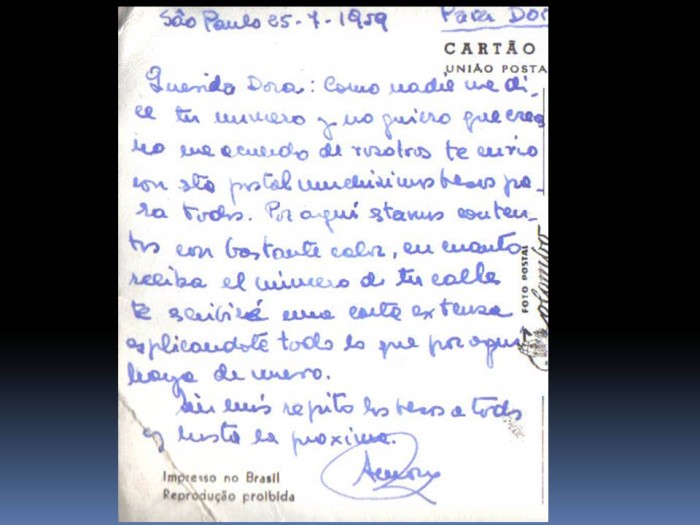 São Paulo 25-7-1959
Para Dor
CARTÃO
UNIÃO POSTA
Querida Dora: Como nadie me di-
ce tu numero y no quiero que creas
no me acuerdo de vosotros te envio
con sta postal muchisimos besos pa-
ra todos. Por aqui stamos conten-
tos con bastante calor, en cuanto
reciba el número de tu calle
te scribiré una carta extensa
explicandote todo lo que por aqui
haya de nuevo.
Sin más repito los besos a todos
y hasta la proxima.
FOTO POSTAL
Impresso no Brasil
Reprodução proibida